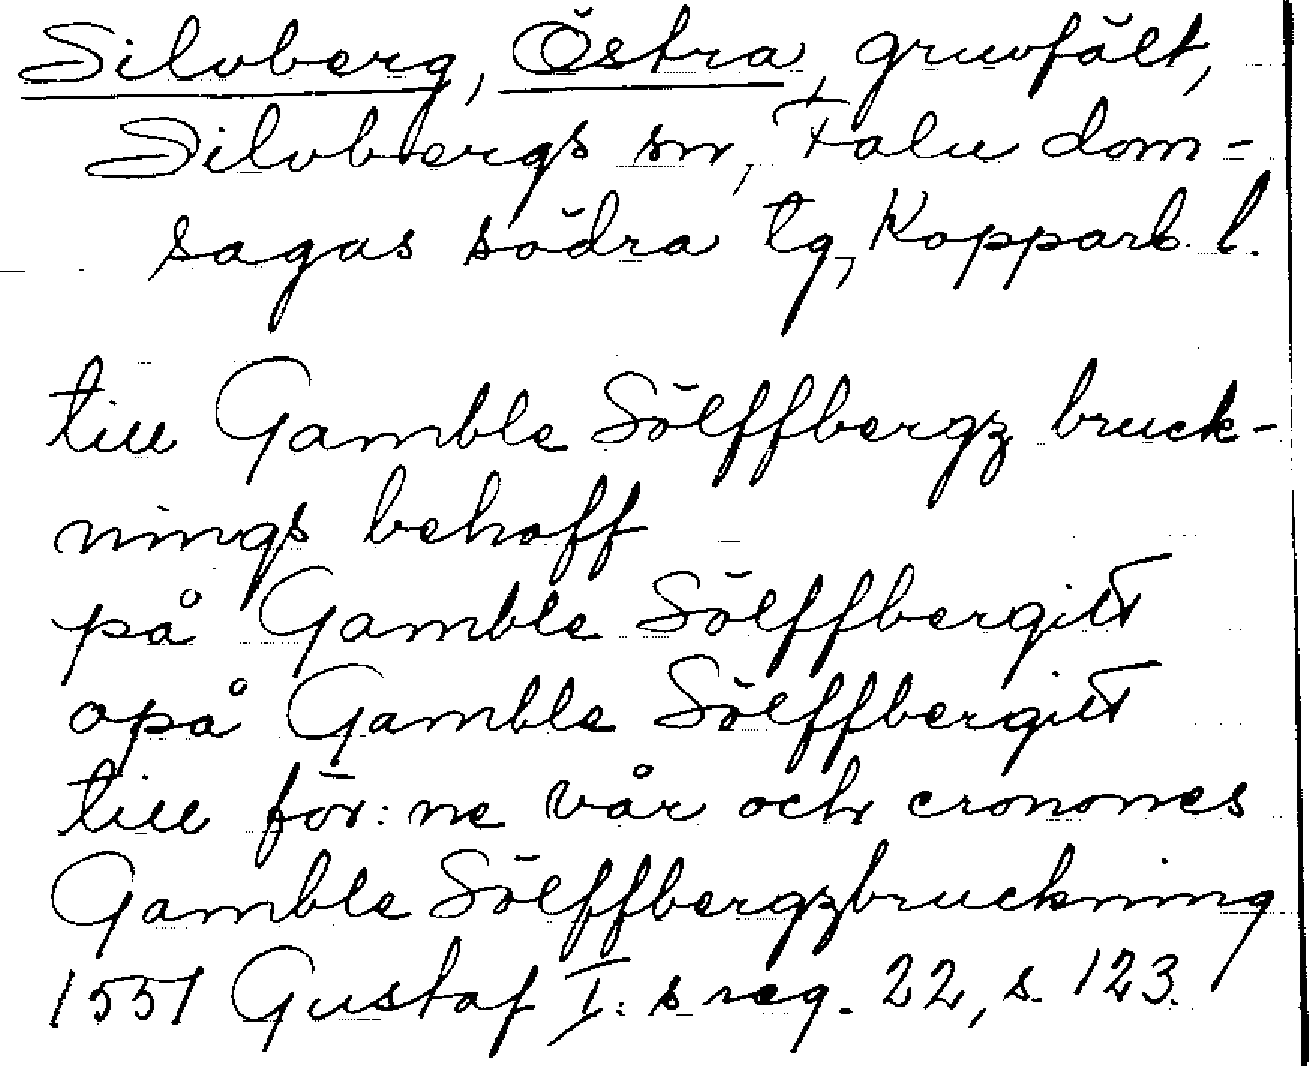 Silvberg, Östra, gruvfält,
Silvbergs sn, Falu dom-
sagas södra tg, Kopparb. l.
till Gamble Sölffbergz bruck-
nings behoff
på Gamble Sölffbergitt
opå Gamble Sölffbergitt
till för:ne vår och cronones
Gamble Sölffbergzbruckning
1551 Gustaf I:s reg. 22, s. 123.